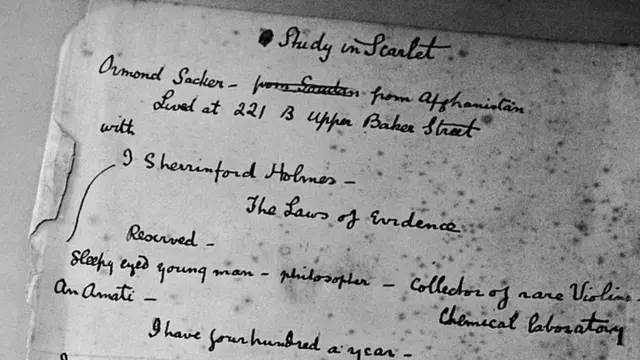 Study in Scarlet
Ormond Sacker – from Soudan from Afghanistan
Lived at 221 B Upper Baker Street
with
I Sherrinford Holmes –
The Laws of Evidence
Reserved –
Sleepy eyed young man – philosopher – Collector of rare Violins
An Amati –
Chemical laboratory
I have four hundred a year –